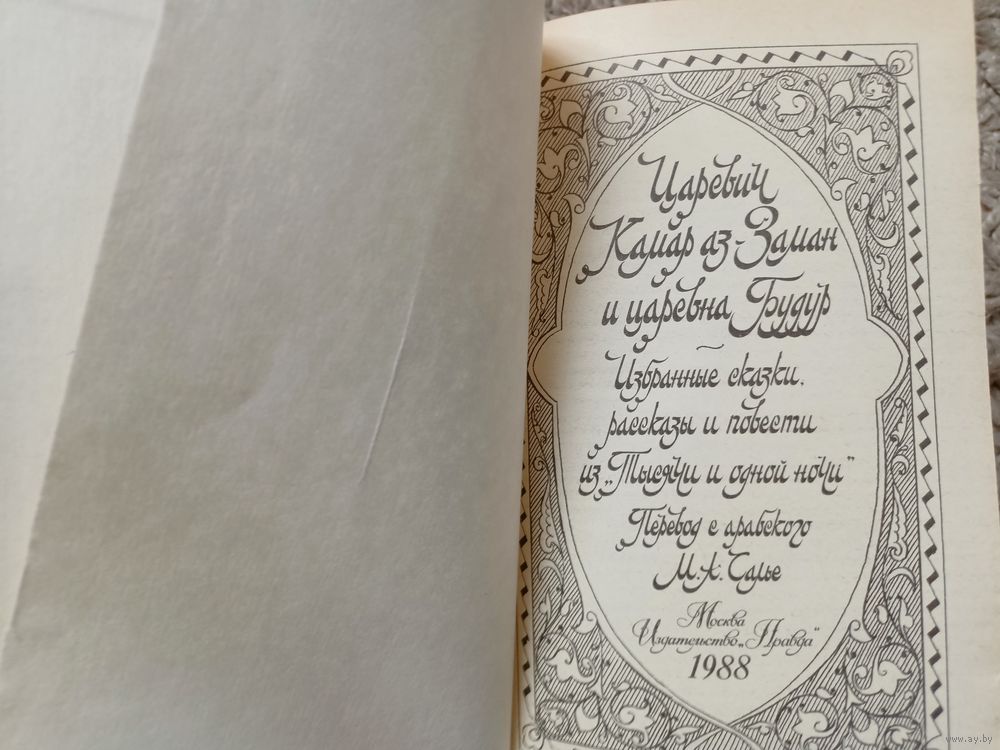 Царевич
Камар аз-Заман
и царевна Будур
Избранные сказки,
рассказы и повести
из „Тысячи и одной ночи“
Перевод с арабского
М.А. Салье
Москва
Издательство „Правда“
1988
www.ay.by